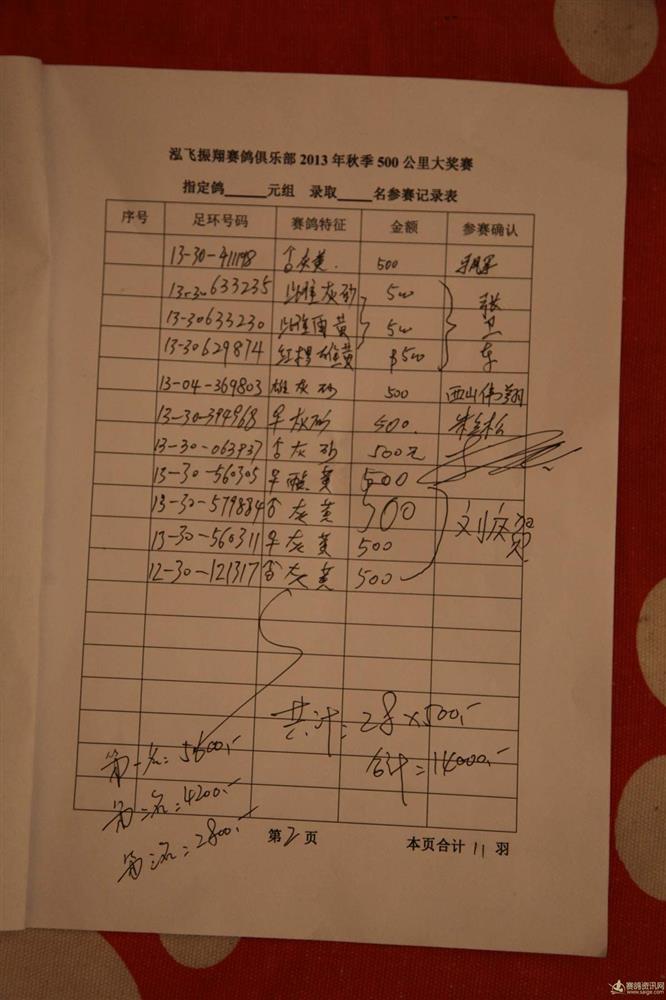 泓飞振翔赛鸽俱乐部 2013 年秋季 500 公里大奖赛
指定鸽______元组 录取_____名参赛记录表
序号 足环号码 赛鸽特征 金额 参赛确认
13-30-411198 灰黄. 500
13-30633235 雄灰砂 500 张
13-30633230 雄雨黄 500 卫
13-30629874 红楞雄黄 500 东
13-04-369803 雄灰砂 500 西山伟翔
13-30-394968 灰砂 500.
13-30-063937 灰砂 500元
13-30-560305 黄 500
13-30-579884 灰黄 500 刘庆贺
13-30-560311 灰黄 500
12-30-121317 灰黄 500
共计:28×500.-
合计=14000.-
第一名:5600.-
第二名:4200.-
第三名:2800.-
第2页 本页合计 11 羽
赛鸽资讯网
www.saige.com